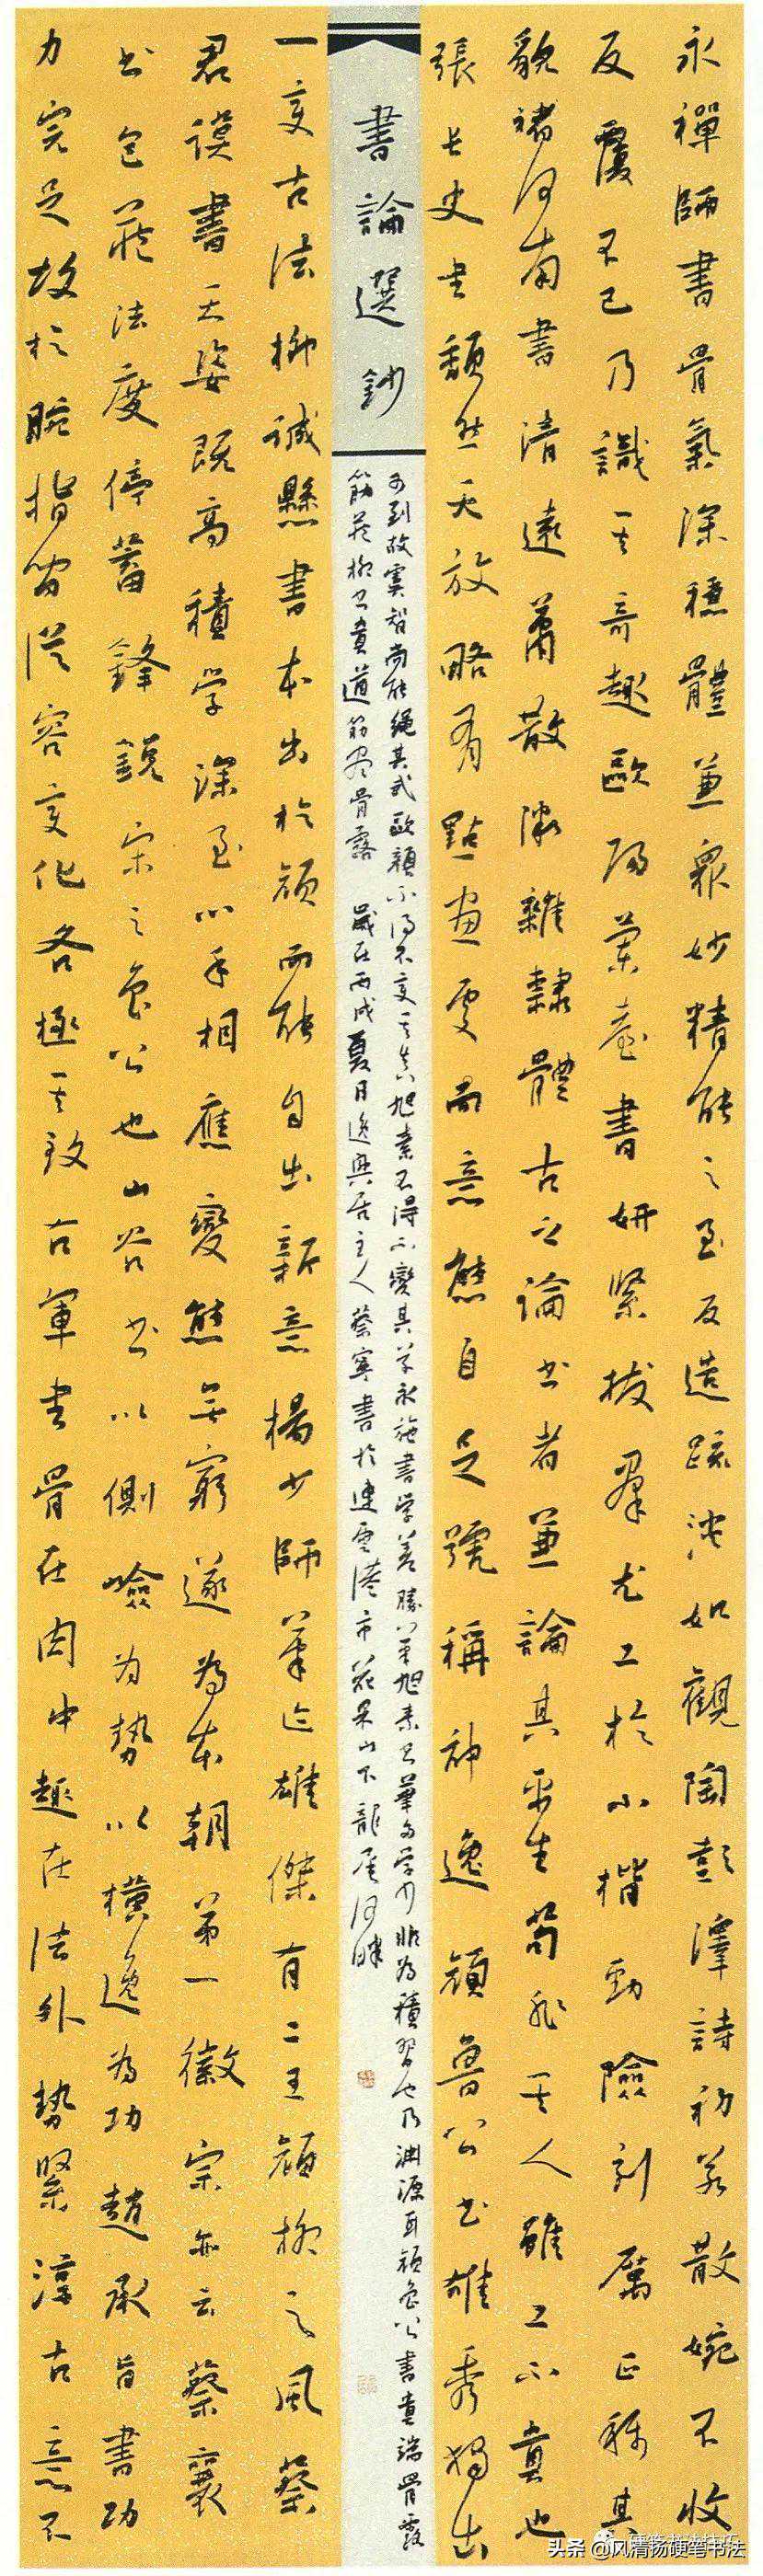 永禪師書骨氣深穩體兼衆妙精能之至反造疏淡如觀陶彭澤詩初若散婉不收
反覆不已乃識其奇趣歐陽蘭臺書妍緊拔群尤工於小楷勁險刻厲正稱其
貌褚河南書清遠蕭散微雜隸體古之論書者兼論其平生苟非其人雖工不貴也
張長史書頹然天放略有點畫處而意態自足號稱神逸顏魯公書雄秀獨出
書論選鈔
一變古法柳誠懸書本出於顏而能自出新意楊少師筆迹雄傑有二王顏柳之風蔡
君謨書天姿既高積學深至心手相應變態無窮遂為本朝第一徽宗亦云蔡襄
書包藏法度停蓄鋒銳宋之魯公也山谷書以側險為勢以橫逸為功趙承旨書功
力完足故於腕指間從容變化各極其致右軍書骨在肉中趣在法外勢緊淳古意不
可到故虞智尚能繩其武歐顏不得不變其真旭素不得不變其草永施書學差勝筆旭素之筆多學少非為積習也乃淵源耳顏魯公書貴端骨露
筋藏柳之貴遒筋盡骨露 歲在丙戌夏日逸興居主人蔡寧書於連雲港市花果山下龍尾河畔
頭条 @风清扬硬笔书法